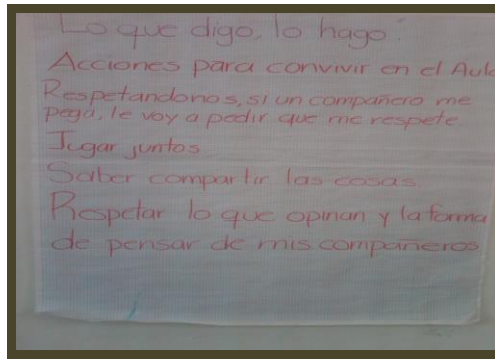 Lo que digo, lo hago.
Acciones para convivir en el Aula
Respetandonos, si un compañero me
pega, le voy a pedir que me respete
Jugar juntos
Saber compartir las cosas
Respetar lo que opinan y la forma
de pensar de mis compañeros